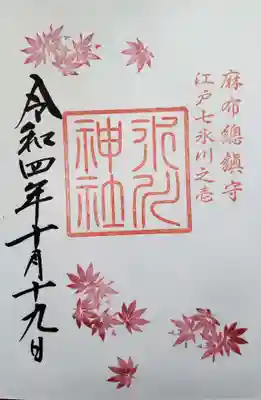 麻布總鎮守
江戸七氷川之壱
氷川神社
令和四年十月十九日